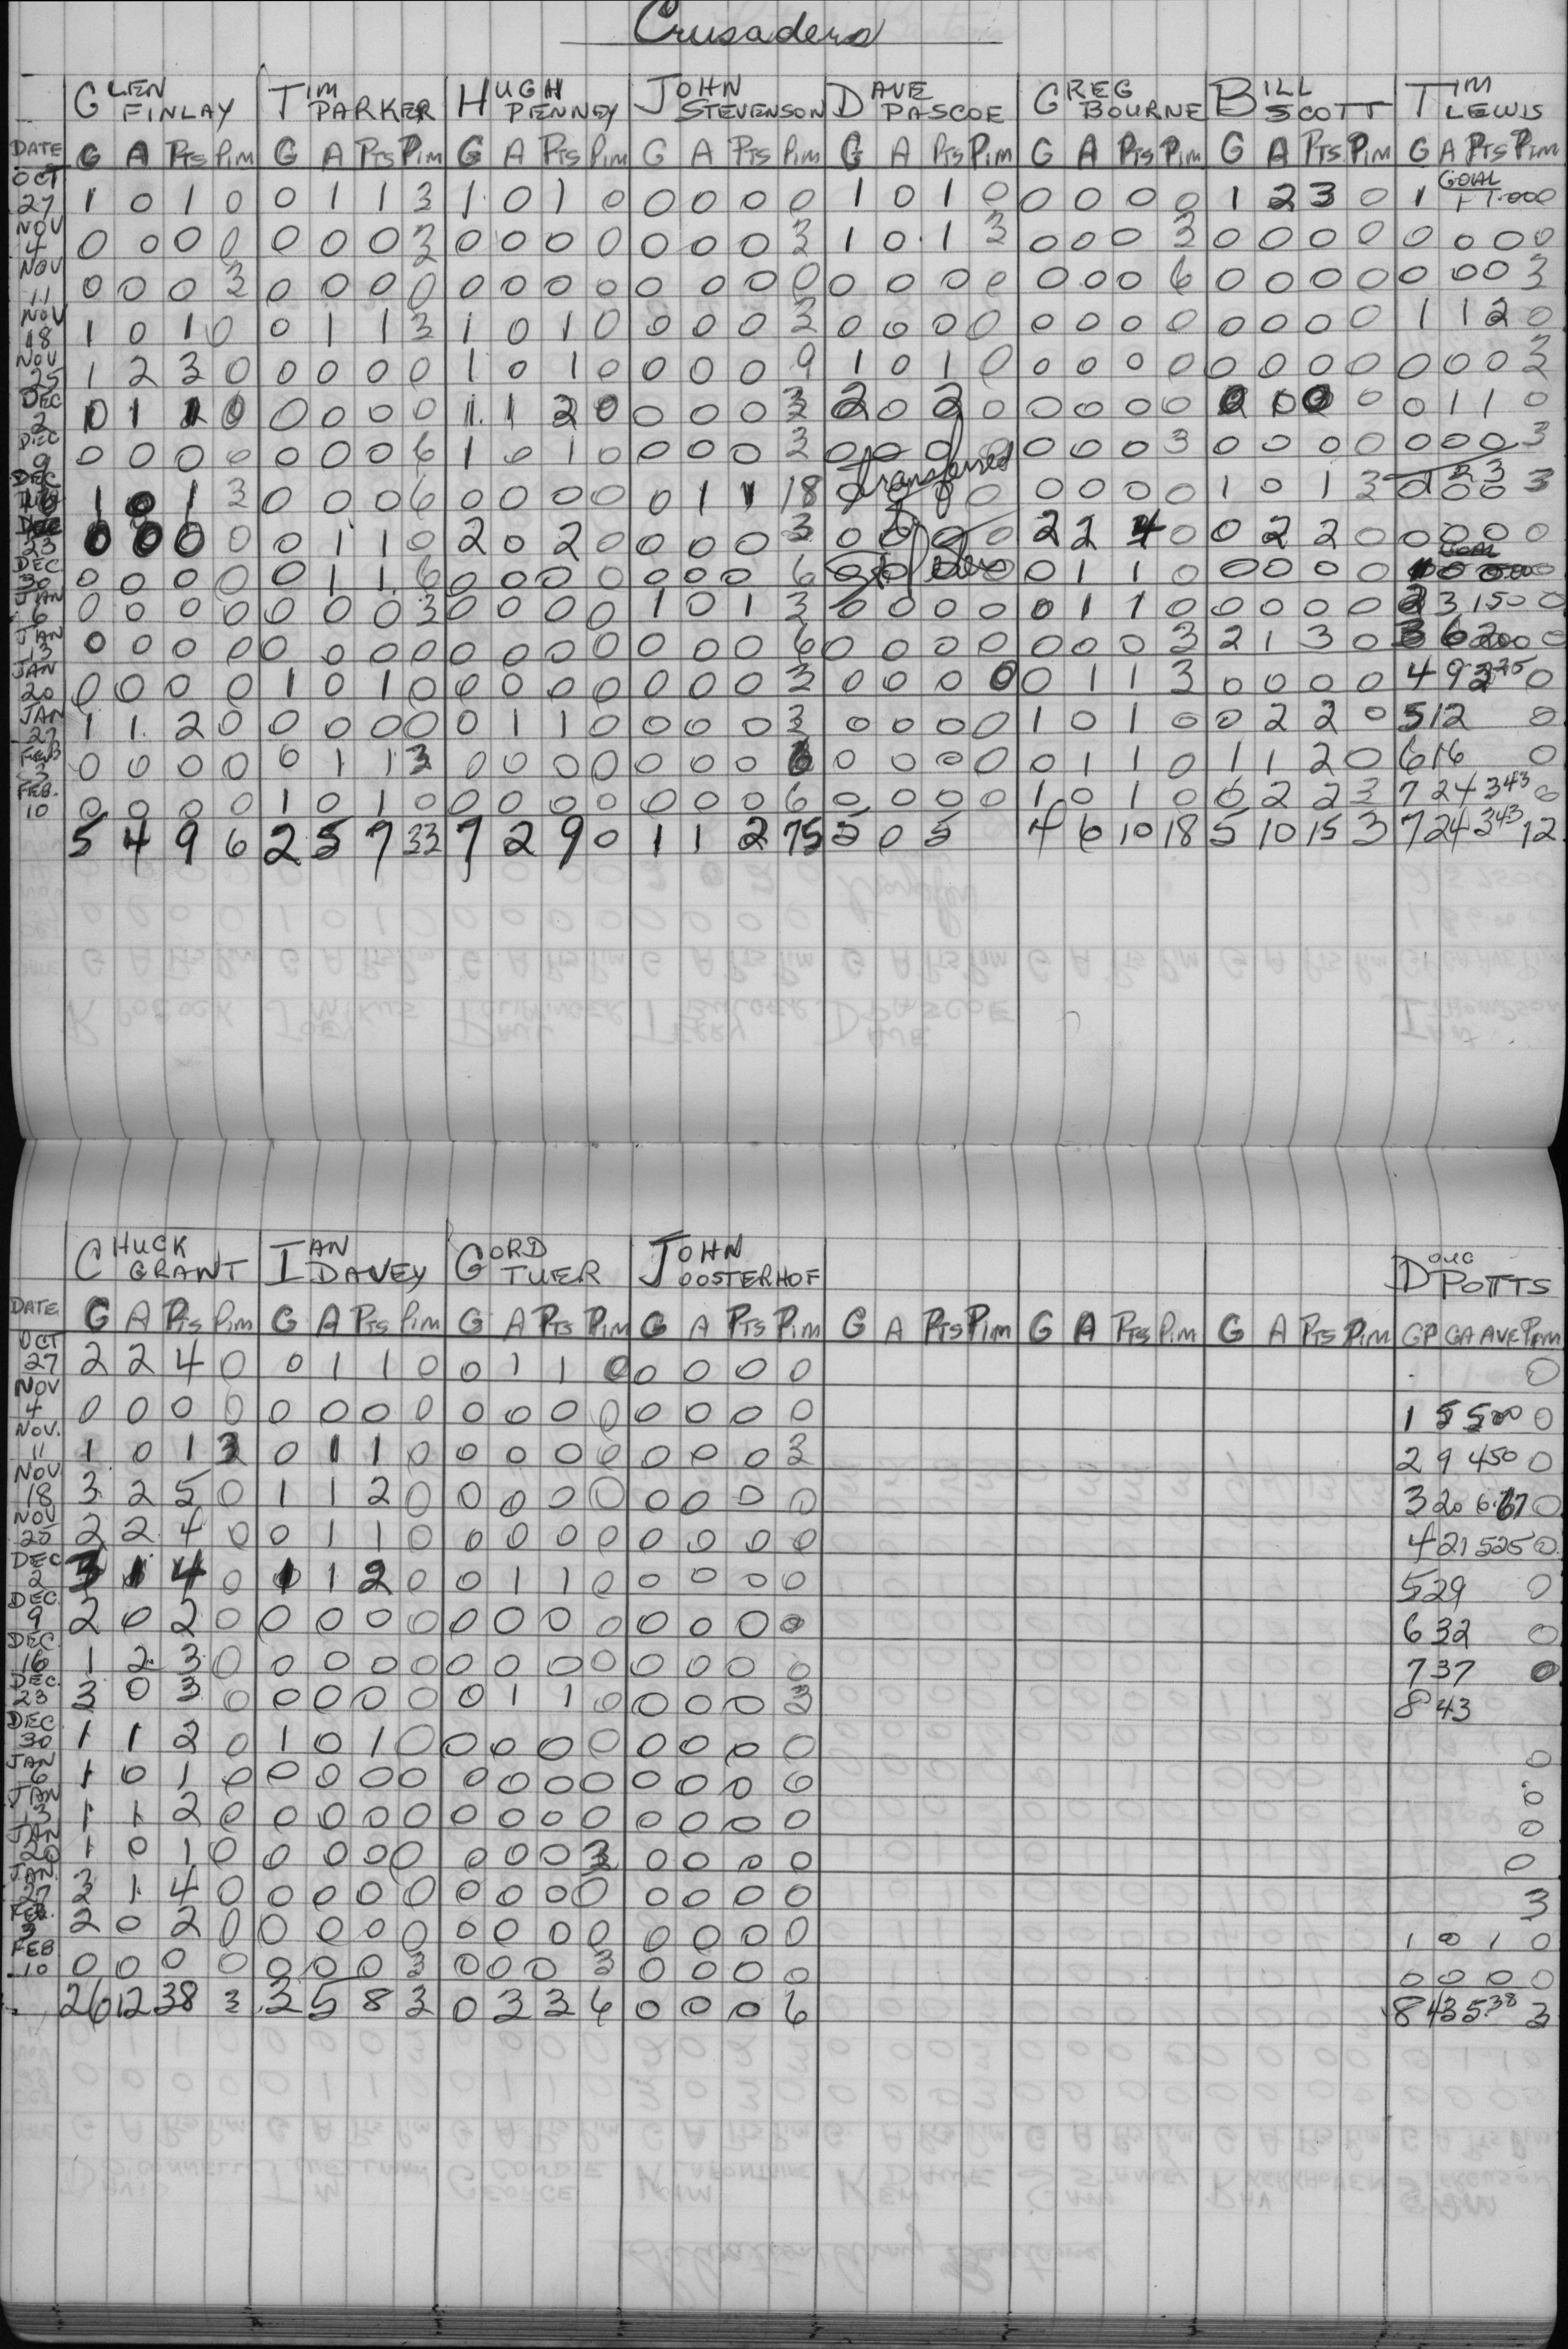 Crusaders
GLEN FINLAY TIM PARKER HUGH PENNEY JOHN STEVENSON DAVE PASCOE GREG BOURNE BILL SCOTT TIM LEWIS
DATE G A PTS PIM G A PTS PIM G A PTS PIM G A PTS PIM G A PTS PIM G A PTS PIM G A PTS PIM G A PTS PIM
OCT 27 1 0 1 0 0 1 1 3 1 0 1 0 0 0 0 0 1 0 1 0 0 0 0 0 1 2 3 0 1 GOAL 1 1.00 0
NOV 4 0 0 0 0 0 0 0 3 0 0 0 0 0 0 0 3 1 0 1 3 0 0 0 3 0 0 0 0 0 0 0 0
NOV 11 0 0 0 3 0 0 0 0 0 0 0 0 0 0 0 0 0 0 0 0 0 0 0 6 0 0 0 0 0 0 0 3
NOV 18 1 0 1 0 0 1 1 3 1 0 1 0 0 0 0 3 0 0 0 0 0 0 0 0 0 0 0 0 1 1 2 0
NOV 25 1 2 3 0 0 0 0 0 1 0 1 0 0 0 0 9 1 0 1 0 0 0 0 0 0 0 0 0 0 0 0 3
DEC 2 0 1 1 0 0 0 0 0 1 1 2 0 0 0 0 3 2 0 2 0 0 0 0 0 0 0 0 0 1 1 0
DEC 9 0 0 0 0 0 0 0 6 1 0 1 0 0 0 0 3 0 0 0 0 0 0 0 3 0 0 0 0 0 0 0 3
DEC 16 1 0 1 3 0 0 0 6 0 0 0 0 0 1 1 18 0 0 0 0 transferred 0 0 0 0 1 0 1 3 0 0 3
DEC 23 0 0 0 0 0 1 1 0 2 0 2 0 0 0 0 3 0 0 0 0 to 2 2 4 0 0 2 2 0 0 0 0 0
DEC 30 0 0 0 0 0 1 1 6 0 0 0 0 0 0 0 6 0 0 0 0 0 1 1 0 0 0 0 0 GOAL
JAN 6 0 0 0 0 0 0 0 3 0 0 0 0 1 0 1 3 0 0 0 0 0 1 1 0 0 0 0 0 2 3 150 0
JAN 13 0 0 0 0 0 0 0 0 0 0 0 0 0 0 0 6 0 0 0 0 0 0 0 3 2 1 3 0 3 6 200 0
JAN 20 0 0 0 0 1 0 1 0 0 0 0 0 0 0 0 3 0 0 0 0 0 1 1 3 0 0 0 0 4 9 2 25 0
JAN 27 1 1 2 0 0 0 0 0 0 1 1 0 0 0 0 3 0 0 0 0 1 0 1 0 0 2 2 0 5 12 0
FEB 3 0 0 0 0 0 1 1 3 0 0 0 0 0 0 0 6 0 0 0 0 0 1 1 0 1 1 2 0 6 16 0
FEB. 10 0 0 0 0 1 0 1 0 0 0 0 0 0 0 0 6 0 0 0 0 1 0 1 0 0 2 2 3 7 24 343 0
5 4 9 6 2 5 7 33 7 2 9 0 1 1 2 75 5 0 5 4 6 10 18 5 10 15 3 7 24 343 12
CHUCK GRANT IAN DAVEY GORD TUER JOHN OOSTERHOF DOUG POTTS
DATE G A PTS PIM G A PTS PIM G A PTS PIM G A PTS PIM G A PTS PIM G A PTS PIM G A PTS PIM GP GA AVE PIM
OCT 27 2 2 4 0 0 1 1 0 0 1 1 0 0 0 0 0 0
NOV 4 0 0 0 0 0 0 0 0 0 0 0 0 0 0 0 0 1 5 500 0
NOV. 11 1 0 1 3 0 1 1 0 0 0 0 0 0 0 0 3 2 9 450 0
NOV 18 3 2 5 0 1 1 2 0 0 0 0 0 0 0 0 0 3 20 6.67 0
NOV 25 2 2 4 0 0 1 1 0 0 0 0 0 0 0 0 0 4 21 525 0
DEC 2 3 1 4 0 1 1 2 0 0 1 1 0 0 0 0 0 5 29 0
DEC. 9 2 0 2 0 0 0 0 0 0 0 0 0 0 0 0 0 6 32 0
DEC. 16 1 2 3 0 0 0 0 0 0 0 0 0 0 0 0 0 7 37 0
DEC. 23 3 0 3 0 0 0 0 0 0 1 1 0 0 0 0 3 8 43
DEC 30 1 1 2 0 1 0 1 0 0 0 0 0 0 0 0 0 0
JAN 6 1 0 1 0 0 0 0 0 0 0 0 0 0 0 0 0 0
JAN 13 1 1 2 0 0 0 0 0 0 0 0 0 0 0 0 0 0
JAN 20 1 0 1 0 0 0 0 0 0 0 0 3 0 0 0 0 0
JAN. 27 3 1 4 0 0 0 0 0 0 0 0 0 0 0 0 0 3
FEB. 3 2 0 2 0 0 0 0 0 0 0 0 0 0 0 0 0 1 0 1 0
FEB 10 0 0 0 0 0 0 0 3 0 0 0 3 0 0 0 0 0 0 0 0
26 12 38 3 3 5 8 3 0 3 3 6 0 0 0 6 8 43 538 3